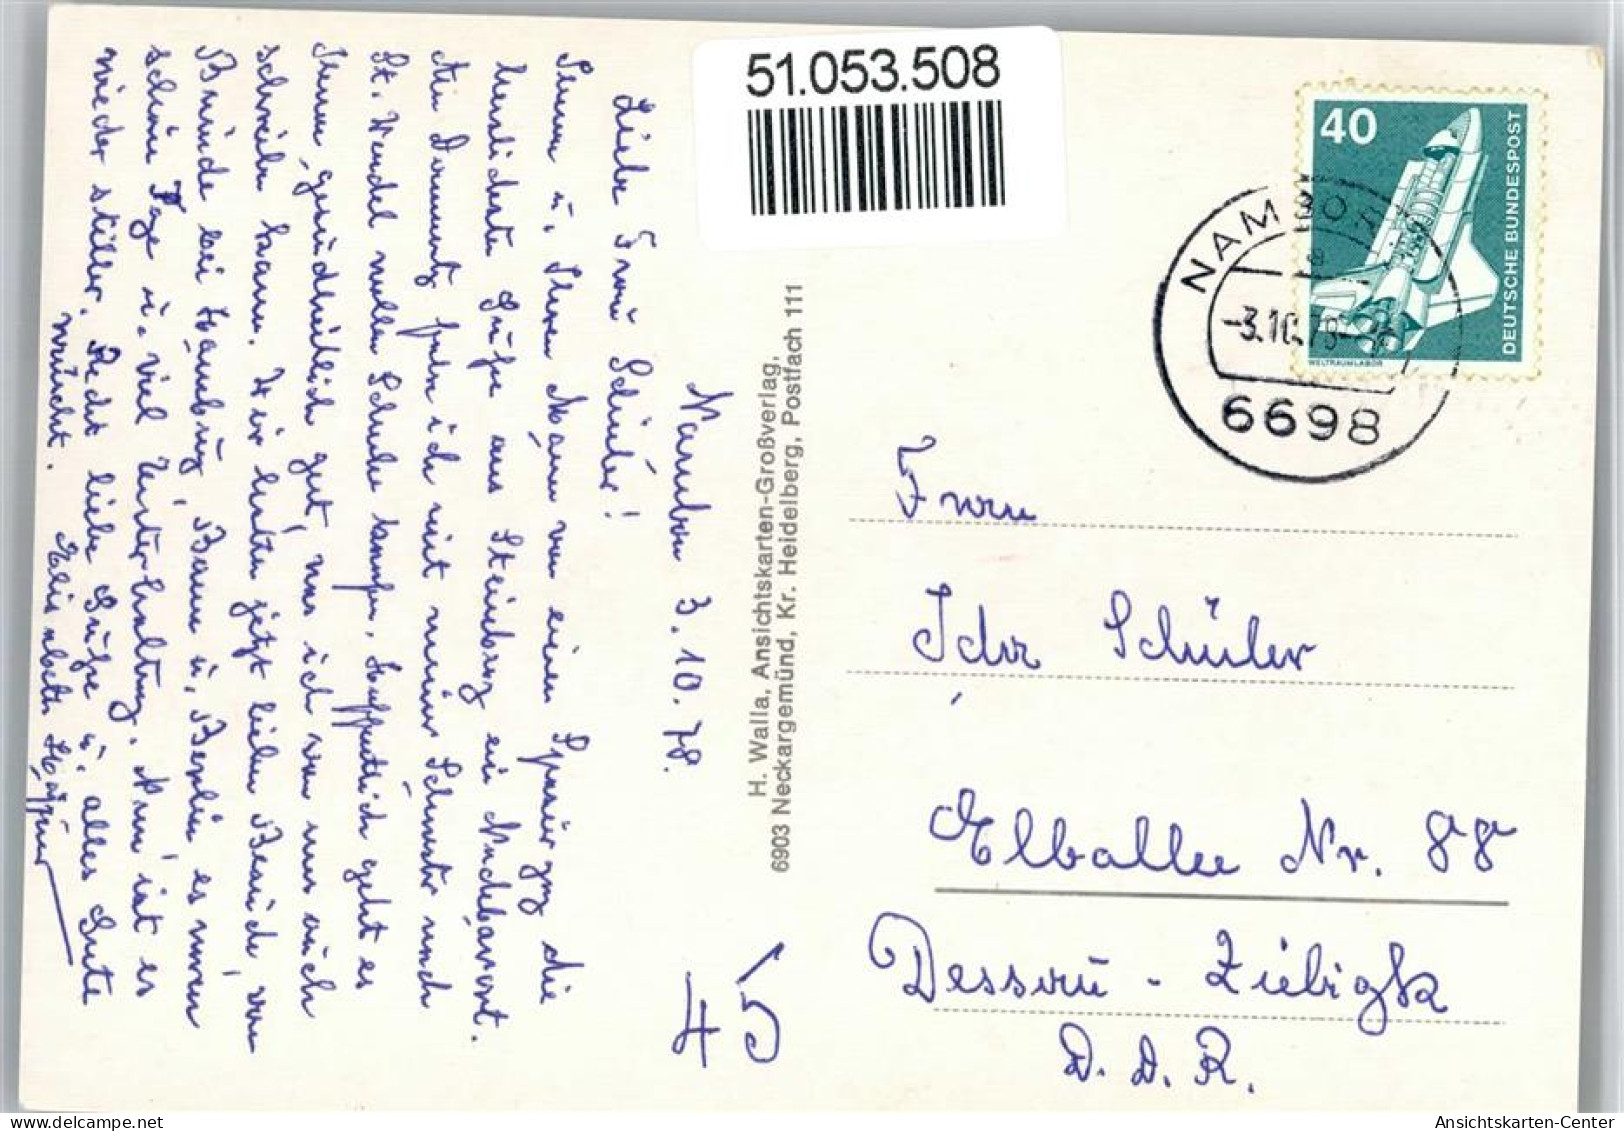 51.053.508
40
DEUTSCHE BUNDESPOST
WELTRAUMLABOR
NAMBORN
-3.10.78
6698
Namborn 3.10.78.
Liebe Frau Schüler!
Ihnen u. Ihrem Mann von einem Spaziergang die
herzlichsten Grüße aus Steinberg ein Nachbarort.
Am Donnerstag fahre ich mit meiner Schwester nach
St. Wendel wollen Schuhe kaufen. Hoffentlich geht es
Ihnen gesundheitlich gut, was ich von uns auch
schreiben kann. Wir hatten jetzt lieben Besuch, von
Freunde bei Hamburg, Bonn u. Berlin es waren
schöne Tage u. viel Unterhaltung. Nun ist es
wieder stiller. Recht liebe Grüße u. alles Gute
wünscht. Elisabeth
H. Walla, Ansichtskarten-Großverlag,
6903 Neckargemünd, Kr. Heidelberg, Postfach 111
45
Frau
Ida Schüler
Elballee Nr. 88
Dessau - Ziebigk
D.D.R.
Ansichtskarten-Center